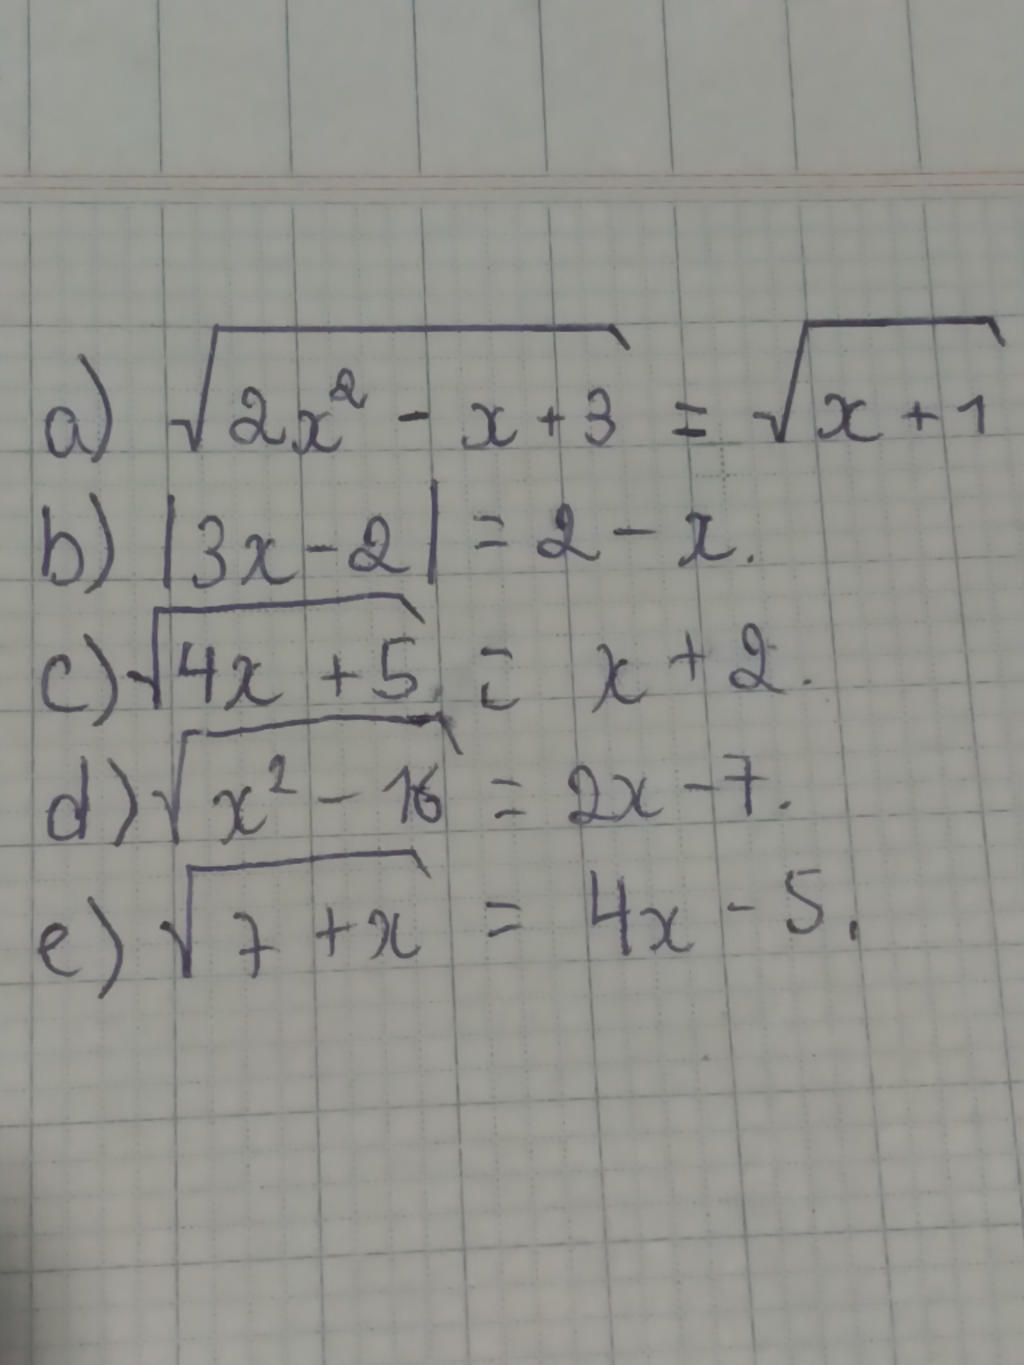 a) √(2x² - x + 3) = √(x + 1)
b) |3x - 2| = 2 - x.
c) √(4x + 5) = x + 2.
d) √(x² - 16) = 2x - 7.
e) √(7 + x) = 4x - 5.